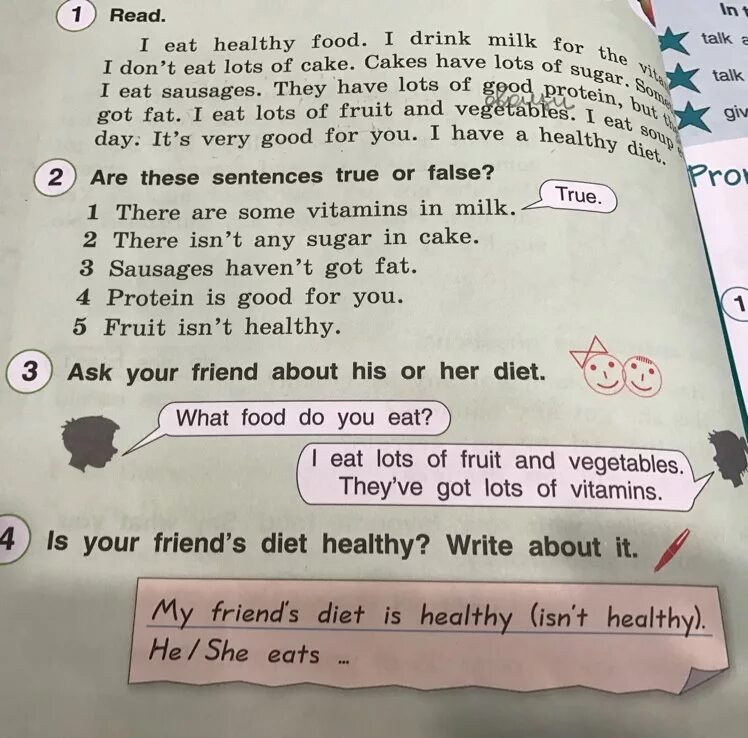 1 Read.
I eat healthy food. I drink milk for the
I don't eat lots of cake. Cakes have lots of sugar.
I eat sausages. They have lots of good protein, but
got fat. I eat lots of fruit and vegetables. I eat soup
day. It's very good for you. I have a healthy diet.
2 Are these sentences true or false?
1 There are some vitamins in milk.
True.
2 There isn't any sugar in cake.
3 Sausages haven't got fat.
4 Protein is good for you.
5 Fruit isn't healthy.
3 Ask your friend about his or her diet.
What food do you eat?
I eat lots of fruit and vegetables.
They've got lots of vitamins.
4 Is your friend's diet healthy? Write about it.
My friend's diet is healthy (isn't healthy).
He/She eats ...
In
talk
talk
1